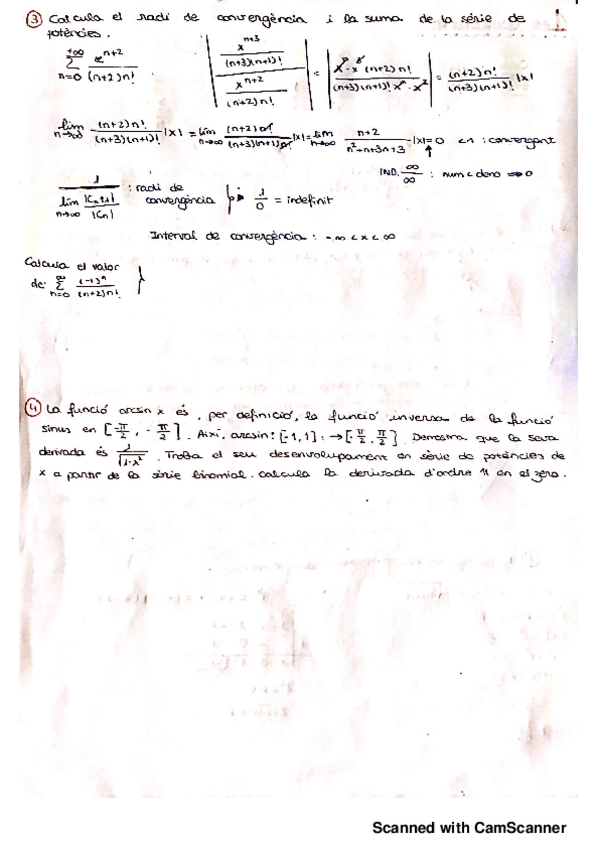 ③ Calcula el radi de convergència i la suma de la sèrie de
potències.
+∞ Σ n=0 x^(n+2) / (n+2)n! | (x^(n+3) / (n+3)(n+1)!) / (x^(n+2) / (n+2)n!) | = | x^n · x^3 (n+2)n! / (n+3)(n+1)! x^n · x^2 | = (n+2)n! / (n+3)(n+1)! |x|
lim n→∞ (n+2)n! / (n+3)(n+1)! |x| = lim n→∞ (n+2)n! / (n+3)(n+1)n! |x| = lim n→∞ n+2 / n²+n+3n+3 |x| = 0 <1 : convergent
IND. ∞/∞ : num < deno ⇒ 0
1 / lim n→∞ |Cn+1| / |Cn| : radi de convergència } 1/0 = indefinit
Interval de convergència : -∞ < x < ∞
Calcula el valor
de: ∞ Σ n=0 (-1)^n / (n+2)n! }
④ La funció arcsin x és, per definició, la funció inversa de la funció
sinus en [-π/2, - π/2]. Així, arcsin: [-1,1]: → [-π/2, π/2]. Demostra que la seva
derivada és 1/√1-x². Troba el seu desenvolupament en sèrie de potències de
x a partir de la sèrie binomial. calcula la derivada d'ordre 11 en el zero.
Scanned with CamScanner